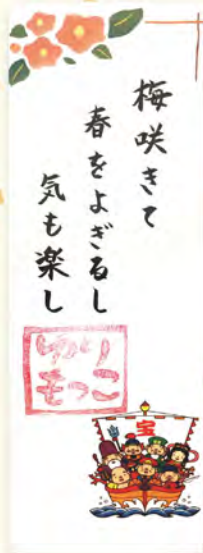 梅咲きて
春をよぎるし
気も楽し
ゆり
もっこ
宝